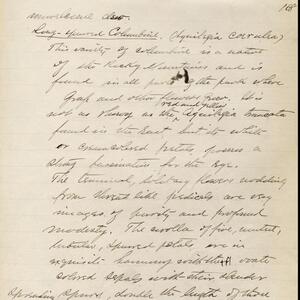 168
Long-spurred Columbine. (Aquilegia coerulea)
This variety of columbine is a native
of the Rocky Mountains and is
found in all parts of the park where
grass and other flowers grow. It is
not as showy as the red and yellow Aquilegia
found in the East but its white
or cream colored petals possess a
strong fascination for the eye.
The terminal, solitary flowers nodding
from thread like pedicels are very
images of purity and profound
modesty. The corolla of five, united,
tubular, spurred petals are in
exquisite harmony with the ovate
colored sepals with their slender
spreading spurs, double the length of those